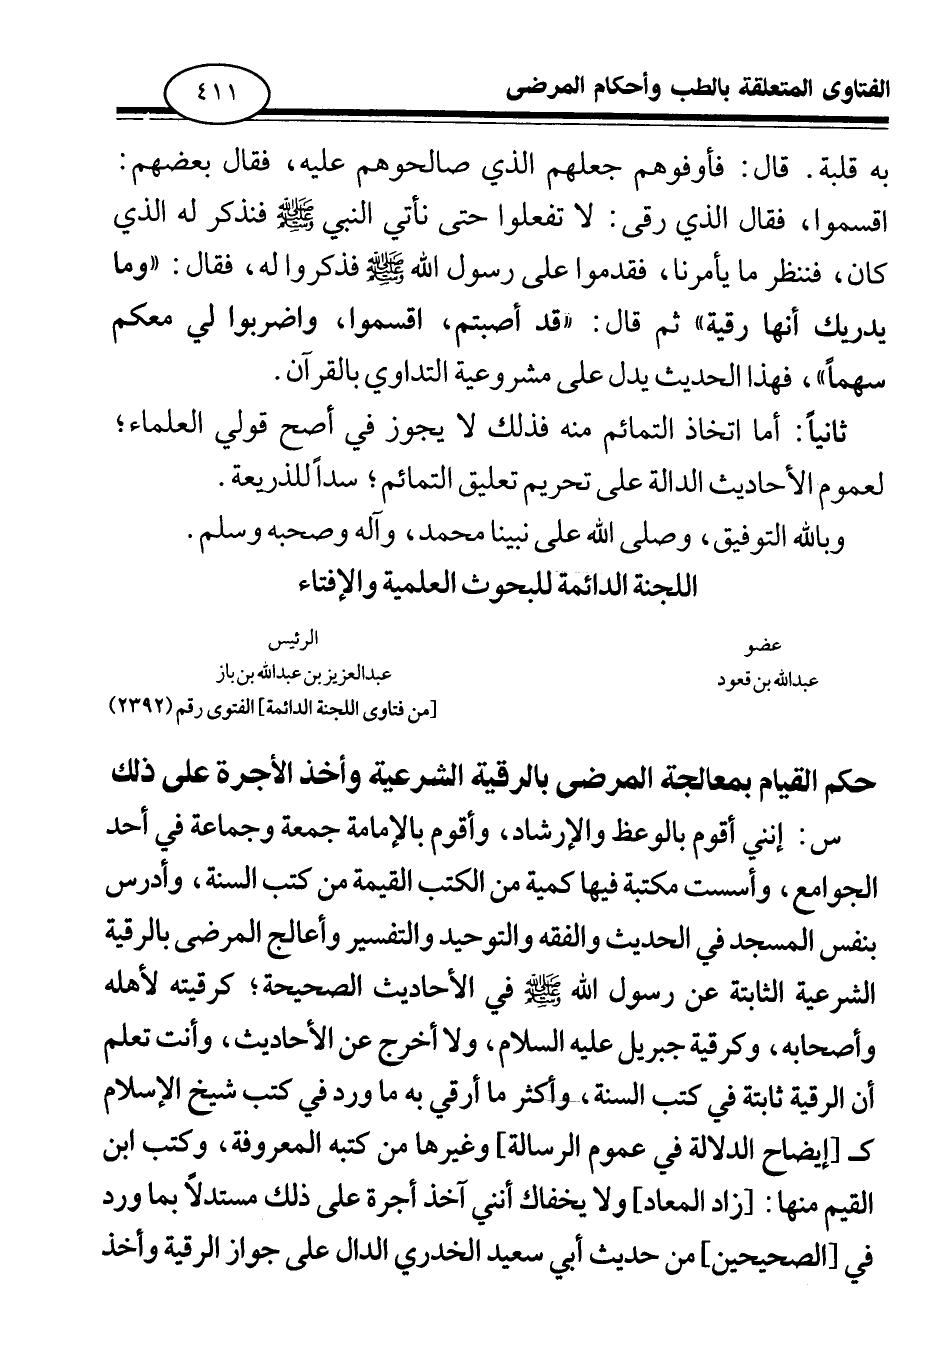 الفتاوى المتعلقة بالطب وأحكام المرضى
٤١١
به قلبة. قال: فأوفوهم جعلهم الذي صالحوهم عليه، فقال بعضهم:
اقسموا، فقال الذي رقى: لا تفعلوا حتى نأتي النبي ﷺ فنذكر له الذي
كان، فننظر ما يأمرنا، فقدموا على رسول الله ﷺ فذكروا له، فقال: «وما
يدريك أنها رقية» ثم قال: «قد أصبتم، اقسموا، واضربوا لي معكم
سهماً»، فهذا الحديث يدل على مشروعية التداوي بالقرآن.
ثانياً: أما اتخاذ التمائم منه فذلك لا يجوز في أصح قولي العلماء؛
لعموم الأحاديث الدالة على تحريم تعليق التمائم؛ سداً للذريعة.
وبالله التوفيق، وصلى الله على نبينا محمد، وآله وصحبه وسلم.
اللجنة الدائمة للبحوث العلمية والإفتاء
عضو الرئيس
عبدالله بن قعود عبدالعزيز بن عبدالله بن باز
[من فتاوى اللجنة الدائمة] الفتوى رقم (٢٣٩٢)
حكم القيام بمعالجة المرضى بالرقية الشرعية وأخذ الأجرة على ذلك
س: إنني أقوم بالوعظ والإرشاد، وأقوم بالإمامة جمعة وجماعة في أحد
الجوامع، وأسست مكتبة فيها كمية من الكتب القيمة من كتب السنة، وأدرس
بنفس المسجد في الحديث والفقه والتوحيد والتفسير وأعالج المرضى بالرقية
الشرعية الثابتة عن رسول الله ﷺ في الأحاديث الصحيحة؛ كرقيته لأهله
وأصحابه، وكرقية جبريل عليه السلام، ولا أخرج عن الأحاديث، وأنت تعلم
أن الرقية ثابتة في كتب السنة، وأكثر ما أرقي به ما ورد في كتب شيخ الإسلام
كـ [إيضاح الدلالة في عموم الرسالة] وغيرها من كتبه المعروفة، وكتب ابن
القيم منها: [زاد المعاد] ولا يخفاك أنني آخذ أجرة على ذلك مستدلاً بما ورد
في [الصحيحين] من حديث أبي سعيد الخدري الدال على جواز الرقية وأخذ